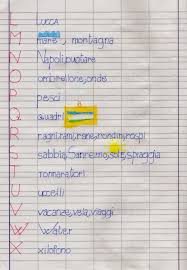 L LUCCA
M mare, montagna
N Napoli, nuotare
O ombrellone, onde
P pesci
Q quadri
R ragni, rami, rane, rondini, rospi
S sabbia, Sanremo, sole, spiaggia
T Tonnaratori
U uccelli
V vacanze, vela, viaggi
W Water
X xilofono